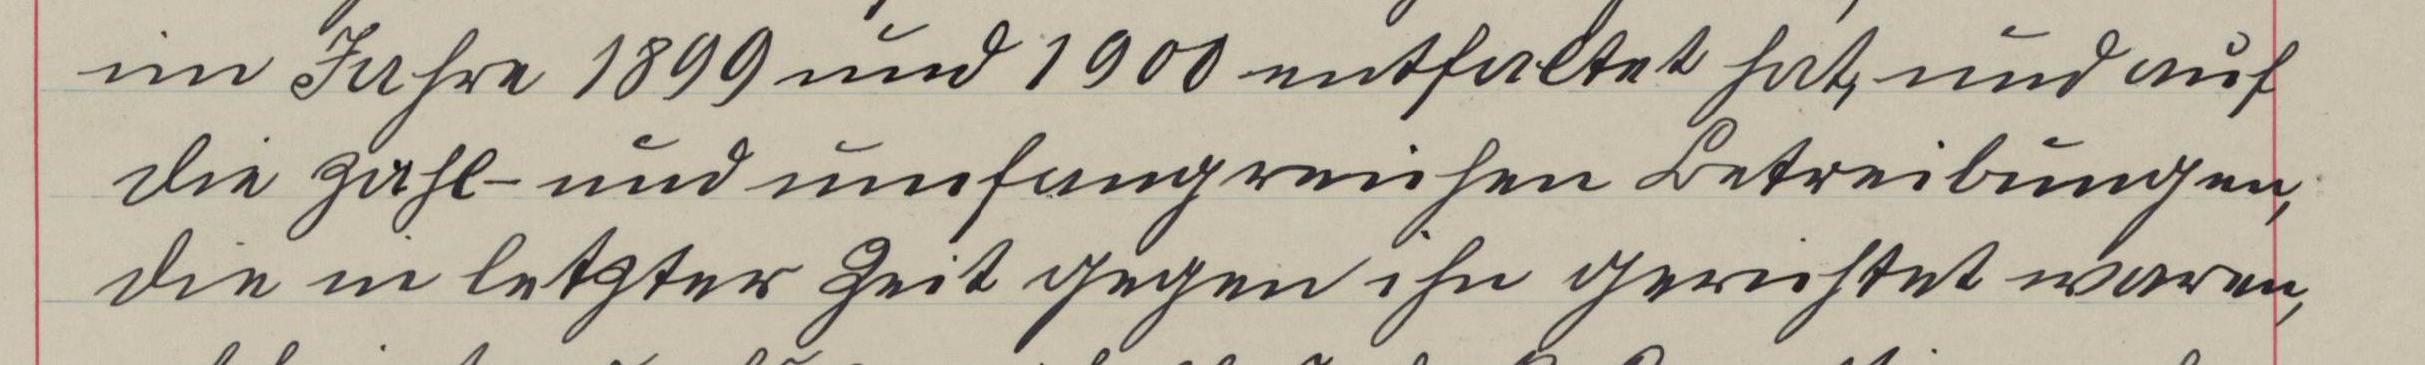 im Jahre 1899 und 1900 entfaltet hat, und auf
die zahl- und umfangreichen Betreibungen,
die in letzter Zeit gegen ihn gerichtet waren,